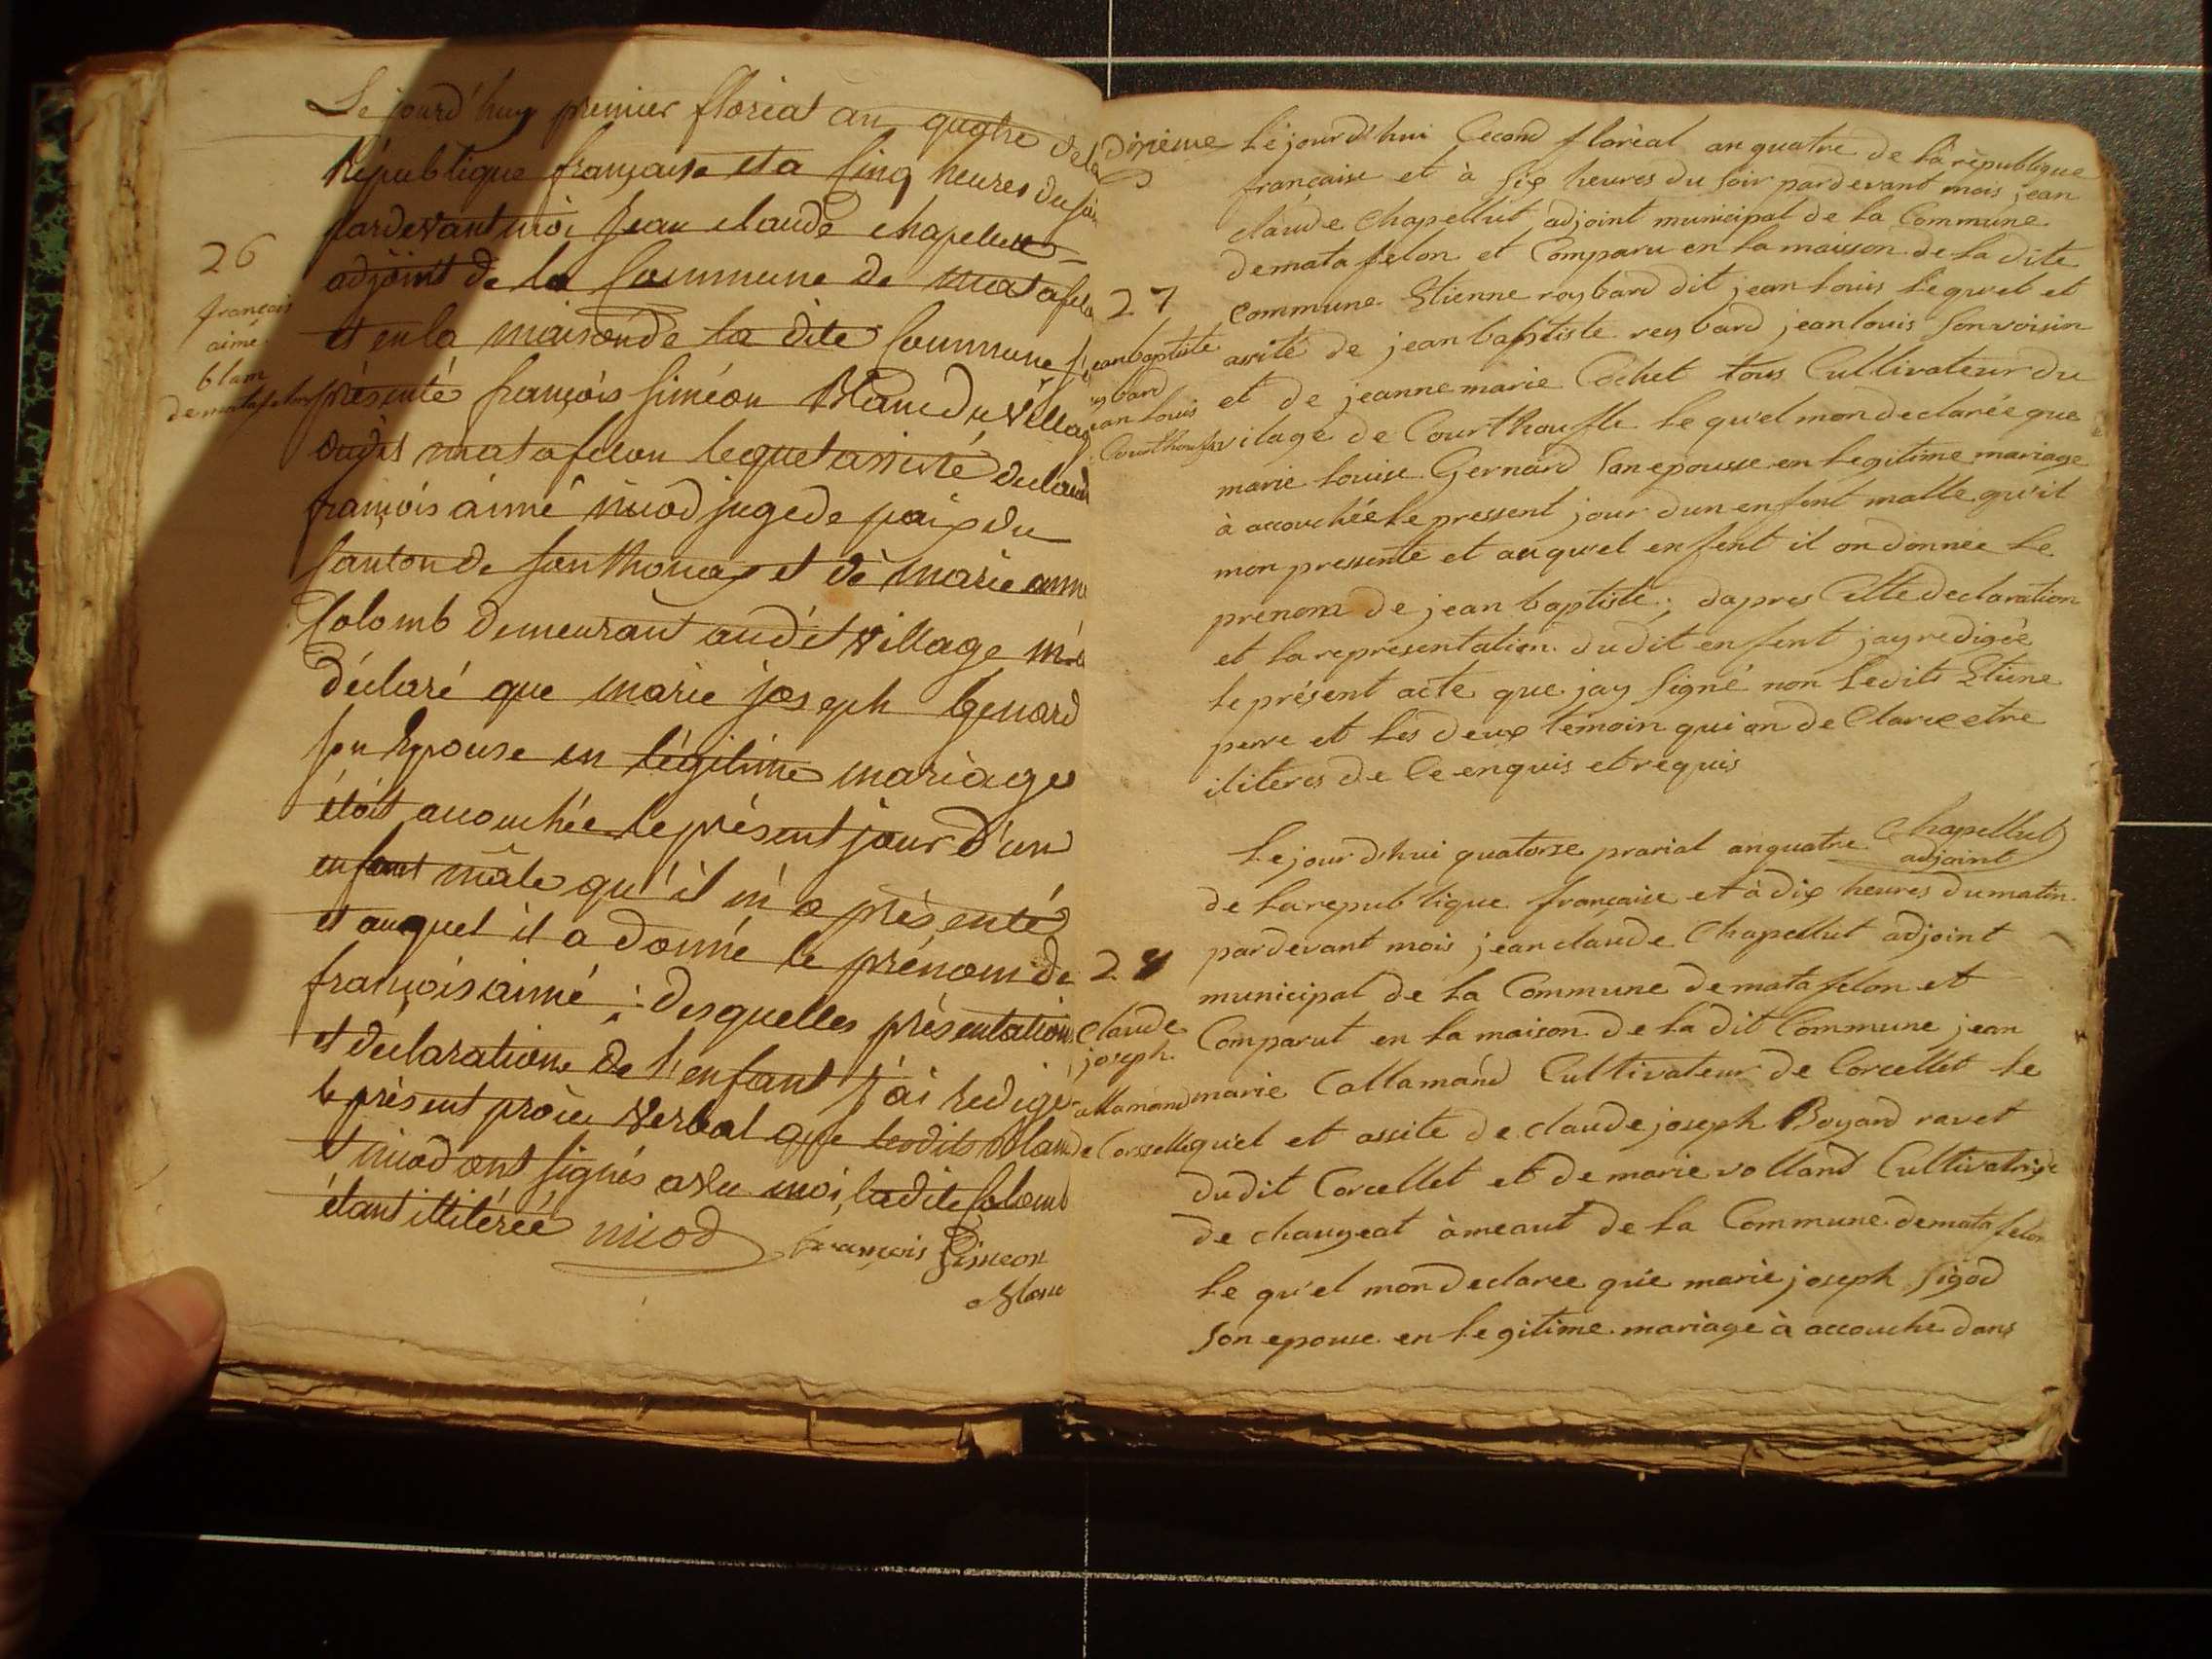 Le jourd'huy premier floreal an quatre de la
république française et a cinq heures du soir
pardevant moi Jean claude chapellut
adjoint de la Commune de matafelon
et en la maison de la dite Commune s'est
26
françois
aimé
blam
de matafelon
présenté françois siméon Blanc du village
dudit matafelon lequel assisté du
françois aimé niod juge de paix du
Canton de Sonthonax et de marie anne
Colomb demeurant audit village m'a
déclaré que marie joseph Genard
son Epouse en légitime mariage
étoit accouchée le présent jour d'un
enfant mâle qu'il m'a présenté
et auquel il a donné le prénom de
françois aimé ; desquelles présentation
et declaration de l'enfant j'ai redigé
le présent procès verbal que lesdits Blanc
et niod ont signés avec moi, ladite Colomb
étant illitérée niod françois Simeon
Blanc
dixième
Lejourd'hui Cecond floréal an quatre de la republique
française et à six heures du soir pardevant mois jean
claude Chapellut adjoint municipal de la Commune
de matafelon et Comparu en la maison de la dite
27
commune Etienne raybard dit jean louis lequ'el et
jean baptiste
assité de jean baptiste reybard jean louis son voisin
ybard
jean louis
et de jeanne marie Cochet tous Cultivateur du
Courthoufle
vilage de Courthoufle le qu'el mon declarée que
marie louise Gernard son epousse en legitime mariage
à accouchée le pressent jour dun enfent malle qu'il
mon pressente et au qu'el enfent il on donnée le
prénom de jean baptiste ; dapres Cette declaration
et la representation dudit enfent jay redigée
le présent acte que jay signé non ledits Etiene
pere et les deux témoin qui on de Claree etre
iliteres de Ce enquis et requis
Chapellut
adjoint
Le jour d'hui quatorze prarial an quatre
de la republique française et à dix heures du matin
pardevant mois jean claude Chapellut adjoint
28
municipal de la Commune de matafelon et
Claude
joseph
Comparut en la maison de la dit Commune jean
allamand
marie Callamand Cultivateur de Corcellet le
de Corsselle
qu'el et assite de claude joseph Boyard ravet
dudit Corcellet et de marie volland Cultivatrise
de chaugeat àmeaut de la Commune de matafelon
le qu'el mon declaree que marie joseph Sigod
son epouse en legitime mariage à accouche dans